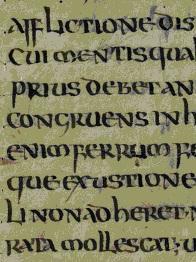 afflictione dis
cui mentis qua
prius debet an
congruens in h
enim ferrum fe
que exustione
li non adheret n
rata mollescat; u